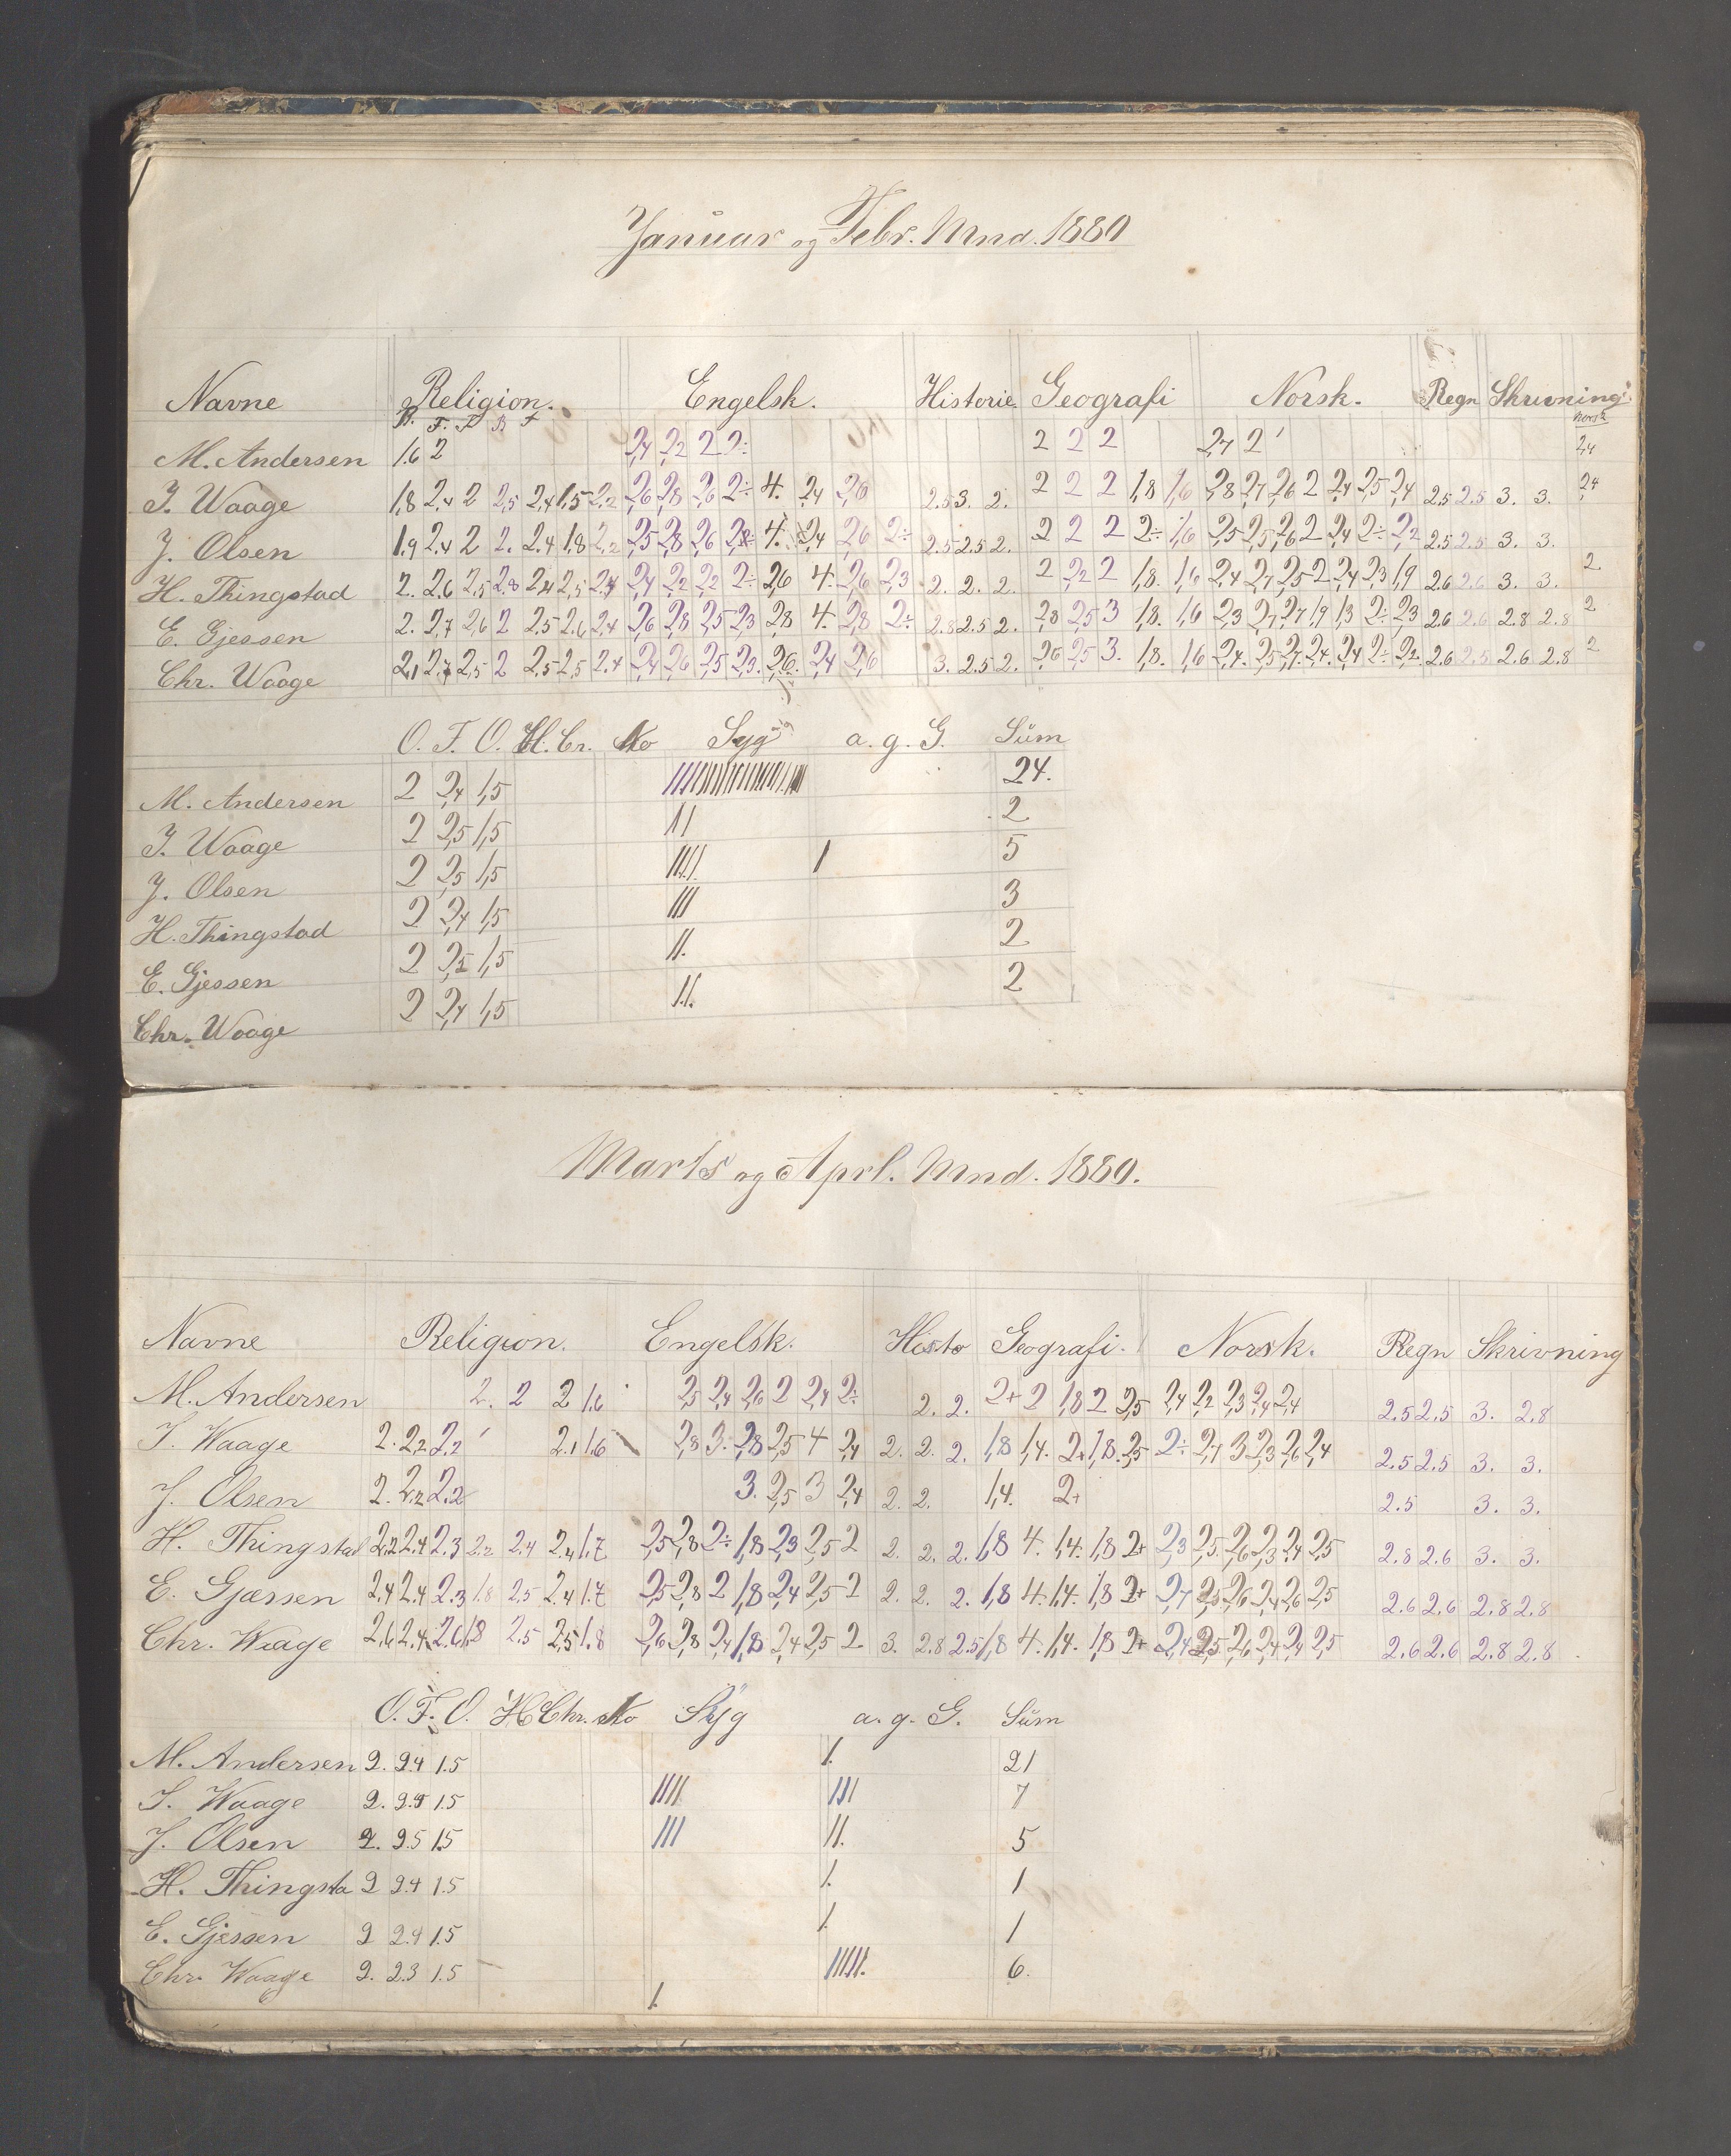 Januar og Febr. Mnd. 1880
Navne Religion. Engelsk. Historie. Geografi Norsk. Regn Skrivning
B. F. F B F Norsk
M. Andersen 1.6 2 2,4 2,2 2 2÷ 2 2 2 2,7 2 2,4
J. Waage 1,8 2,4 2 2,5 2,4 1,5 2,2 2,6 2,8 2,6 2÷ 4. 2,4 2,6 2.5 3. 2. 2 2 2 1,8 1,6 2,8 2,7 2,6 2 2,4 2,5 2,4 2.5 2.5 3. 3. 2,4
J. Olsen 1.9 2.4 2 2. 2.4 1.8 2,2 2,5 2,8 2,6 2,8÷ 4. 2,4 2,6 2÷ 2.5 2.5 2. 2 2 2 2÷ 1,6 2,5 2,5 2,6 2 2,4 2÷ 2,2 2.5 2.5 3. 3.
H. Thingstad 2. 2.6 2,5 2.8 2,4 2,5 2,4 2,4 2,2 2,2 2÷ 2,6 4. 2,6 2,3 2. 2. 2. 2 2,2 2 1,8. 1,6 2,4 2,7 2,5 2 2,4 2,3 1,9 2.6 2.6 3. 3. 2.
E. Gjessen 2. 2,7 2,6 2 2.5 2.6 2.4 2,6 2,8 2,5 2,3 2,8 4. 2,8 2÷ 2.8 2.5 2. 2,8 2,5 3 1,8. 1,6 2,3 2,7 2,7 1,9 1,3 2÷ 2,3 2.6 2.6 2.8 2.8 2.
Chr. Waage 2,1 2,7 2,5 2 2.5 2.5 2.4 2,4 2,6 2,5 2,3. 2,6. 2,4 2,6 3. 2.5 2. 2,6 2,5 3. 1,8. 1,6 2,4. 2,5 2,7. 2,4. 2,4 2÷ 2,2. 2.6 2.5 2.6 2.8 2
O. F. O. H. Cr. No Syg a. g. G. Süm
M. Andersen 2 2,4 1,5 24.
J. Waage 2 2,5 1,5 || 2
J. Olsen 2 2,5 1,5 |||| | 5
H. Thingstad 2 2,4 1,5 ||| 3
E. Gjessen 2 2,5 1,5 ||. 2
Chr. Waage 2 2,4 1,5 ||. 2
Marts og Aprl. Mnd. 1880.
Navne Religion. Engelsk. Histo Geografi. Norsk. Regn Skrivning
M. Andersen 2. 2 2 1.6 2,5 2,4 2,6 2 2,4 2÷ 2. 2. 2+ 2 1,8 2 2,5 2,4 2,2 2,3 2,4 2,4 2.5 2.5 3. 2.8
J. Waage 2. 2.2 2.2 2.1 1.6 2,8 3. 2,8 2,5 4 2,4 2. 2. 2. 1,8 1,4. 2+ 1,8. 2,5 2÷ 2,7 3 2,3 2,6 2,4 2.5 2.5 3. 3.
J. Olsen 2. 2.2 2.2 3. 2,5 3 2,4 2. 2. 1,4. 2+ 2.5 3. 3.
H. Thingstad 2.2 2.4 2.3 2.2 2.4 2.4 1.7 2,5 2,8 2÷ 1,8 2,3 2,5 2 2. 2. 2. 1,8 4. 1,4. 1,8 2+ 2,3 2,5. 2,6 2,3 2,4 2,5 2.8 2.6 3. 3.
E. Gjæssen 2.4 2.4 2.3 1.8 2.5 2.4 1.7 2,5 2,8 2 1,8 2,4 2,5 2 2. 2. 2. 1,8 4. 1,4. 1,8 2+ 2,7 2,5 2,6 2,4 2,6 2,5 2.6 2.6 2.8 2.8
Chr. Waage 2.6 2.4 2.6 1.8 2.5 2.5 1.8 2,6 2,8 2,4 1,8 2,4 2,5 2 3. 2.8 2.5 1,8 4. 1,4. 1,8 2+ 2,4 2,5. 2,6 2,4 2,4 2,5 2.6 2.6 2.8 2.8
O. F. O. H Chr. No Syg a. g. G. Süm
M. Andersen 2. 2.4 1.5 |. 21
J. Waage 2. 2.5 1.5 |||| ||| 7
J. Olsen 2. 2.5 1.5 ||| ||. 5
H. Thingsta 2 2.4 1.5 |. 1
E. Gjessen 2 2.4 1.5 |. 1
Chr. Waage 2. 2.3 1.5 |||||. 6.
|.